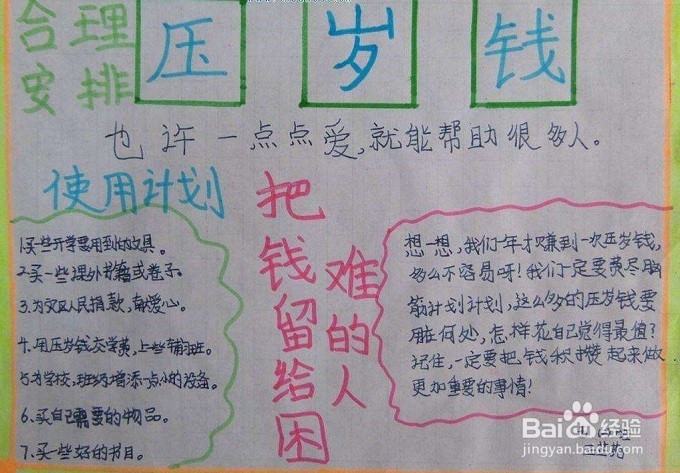 合理
安排
压岁钱
也许一点点爱,就能帮助很多人。
使用计划
1.买一些开学要用到的文具。
2.买一些课外书籍或卷子。
3.为灾区人民捐款,献爱心。
4.用压岁钱交学费,上些辅习班。
5.为学校,班级增添一点小的设备。
6.买自己需要的物品。
7.买一些好的书目。
把钱留给困
难的人
想一想,我们一年才赚到一次压岁钱,
多么不容易呀!我们一定要费尽脑
筋计划计划,这么多的压岁钱要
用在何处,怎样花自己觉得最值?
记住,一定要把钱积攒起来做
更加重要的事情!
Baidu经验
jingyan.baidu.com